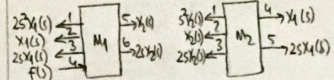 2s²X₁(s) 1
X₁(s) 2
2sX₁(s) 3
f(s) 4
M₁
5 X₂(s)
6 2sX₂(s)
s²X₂(s) 1
X₂(s) 2
2sX₂(s) 3
M₂
4 X₁(s)
5 2sX₁(s)